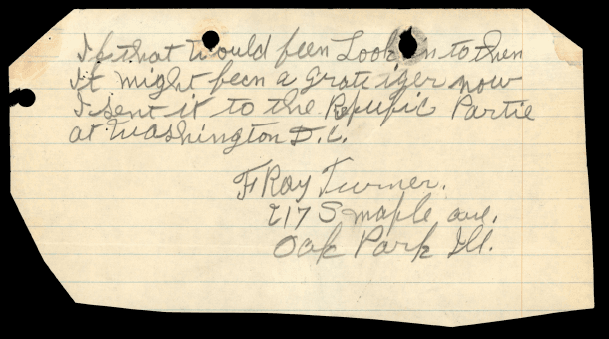 If that Would feen Look in to then
it might feen a grate tiger now
I sent it to the Repupic Partie
at Washington D.C.
F Roy Turner.
217 S maple ave.
Oak Park Ill.